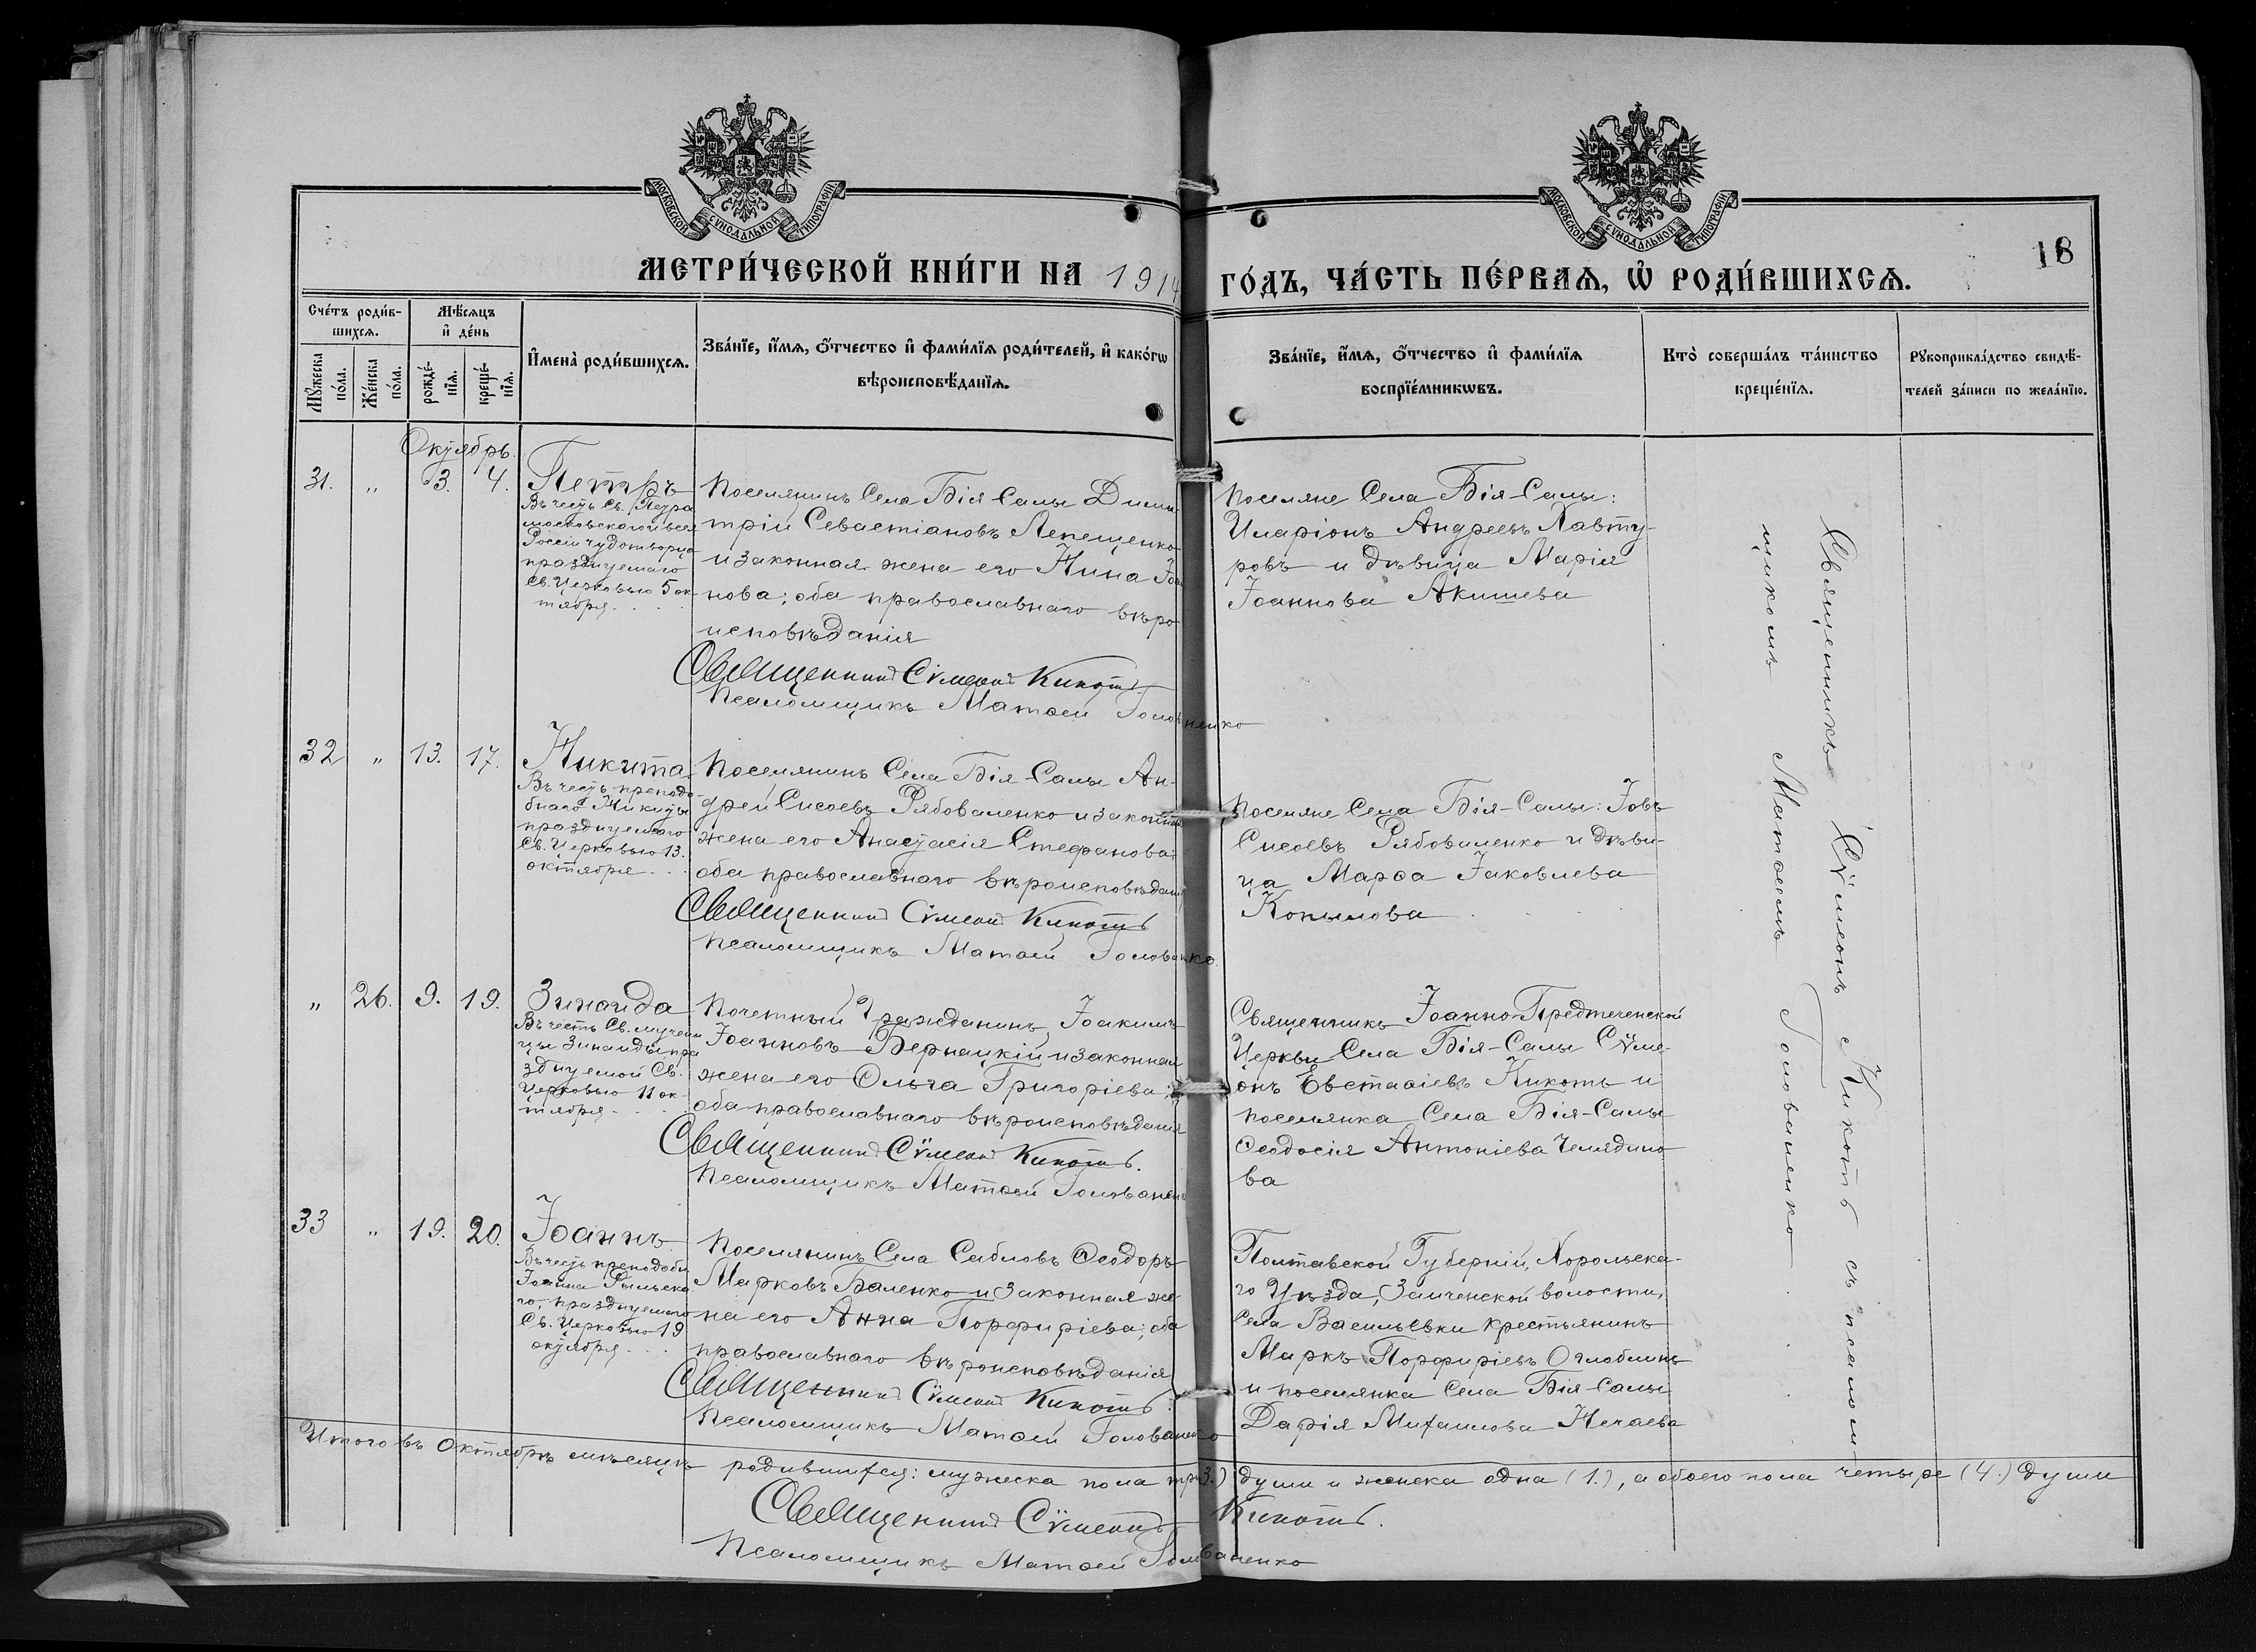 МОСКОВСКОЙ СѴНОДАЛЬНОЙ ТИПОГРАФІИ
МОСКОВСКОЙ СѴНОДАЛЬНОЙ ТИПОГРАФІИ
18
МЕТРИ́ЧЕСКОЙ КНИ́ГИ НА 1914 ГО́ДЪ, ЧА́СТЬ ПЕ́РВАѦ, Ѡ҆ РОДИ́ВШИХСѦ.
Сче́тъ роди́в-
шихсѧ.
Мꙋ́жеска
по́ла.
Же́нска
по́ла.
Мѣ́сѧцъ
и҆ де́нь
рожде́-
нїѧ.
креще́-
нїѧ.
И҆мена̀ роди́вшихсѧ.
Зва́нїе, и҆́мѧ, ѻ҆́тчество и҆ фами́лїѧ роди́телей, и҆ како́гѡ
вѣроисповѣ́данїѧ.
Зва́нїе, и҆́мѧ, ѻ҆́тчество и҆ фами́лїѧ
воспрїе́мникѡвъ.
Кто̀ соверша́лъ та́инство
креще́нїѧ.
Рꙋкоприкла́дство свидѣ́-
телей за́писи по жела́нїю.
Октябрь.
31. „ 3. 4.
Петръ
Въ честь Св. Петра
московскаго и всея
Россіи чудотворца
празднуемаго
Св. Церковью 5 ок-
тября . . .
Поселянинъ Села Бія-Салы Дими-
трій Севастіановъ Лепещенко
и законная жена его Нина Іоа
нова; оба православнаго вѣро
исповѣданія
Священникъ Сѵмеонъ Кикоть
Псаломщикъ Матѳей Голованенко
Поселяне Села Бія-Салы:
Иларіонъ Андреевъ Лавту-
ровъ и дѣвица Марія
Іоаннова Акишева
32 „ 13. 17.
Никита
Въ честь преподо-
бнаго Никиты
празднуемаго
Св. Церковью 13.
октября . . .
Поселянинъ Села Бія-Салы Ан-
дрей Сисоевъ Рябоваленко и законная
жена его Анастасія Стефанова;
оба православнаго вѣроисповѣданія
Священникъ Сѵмеонъ Кикоть
Псаломщикъ Матѳей Голованенко.
Поселяне Села Бія-Салы: Іовъ
Сисоевъ Рябоваленко и дѣви-
ца Марѳа Іаковлева
Копылова
„ 26. 9. 19.
Зинаида
Въ честь Св. мучени
цы Зинаиды пра
зднуемой Св.
Церковью 11 ок-
тября . . .
Почетный Гражданинъ, Іоакимъ
Іоанновъ Бернацкій и законная
жена его Ольга Григоріева;
оба православнаго вѣроисповѣданія
Священникъ Сѵмеонъ Кикоть.
Псаломщикъ Матѳей Голованенко
Священникъ Іоанно-Предтеченской
Церкви Села Бія-Салы Сѵме-
онъ Евстаѳіевъ Кикоть и
поселянка Села Бія-Салы
Ѳеодосія Антоніева Челядино
ва
33 „ 19. 20.
Іоаннъ
Въ честь преподобн.
Іоанна Рыльска
го, празднуемаго
Св. Церковью 19
октября . . .
Поселянинъ Села Сабловъ Ѳеодоръ
Марковъ Баленко и законная же-
на его Анна Порфиріева; оба
православнаго вѣроисповѣданія
Священникъ Сѵмеонъ Кикоть.
Псаломщикъ Матѳей Голованенко
Полтавской Губерніи, Хорольска-
го Уѣзда, волости,
Села Васильевки крестьянинъ
Маркъ Порфиріевъ Оглоблинъ
и поселянка Села Бія-Салы
Дарія Михаилова Нечаева
Священникъ Сѵмеонъ Кикоть съ псалом-
щикомъ Матѳеемъ Голованенко
Итого въ Октябрѣ мѣсяцѣ родившихся: мужеска пола три (3.) души и женска одна (1.), а обоего пола четыре (4.) души
Священникъ Сѵмеонъ Кикоть.
Псаломщикъ Матѳей Голованенко